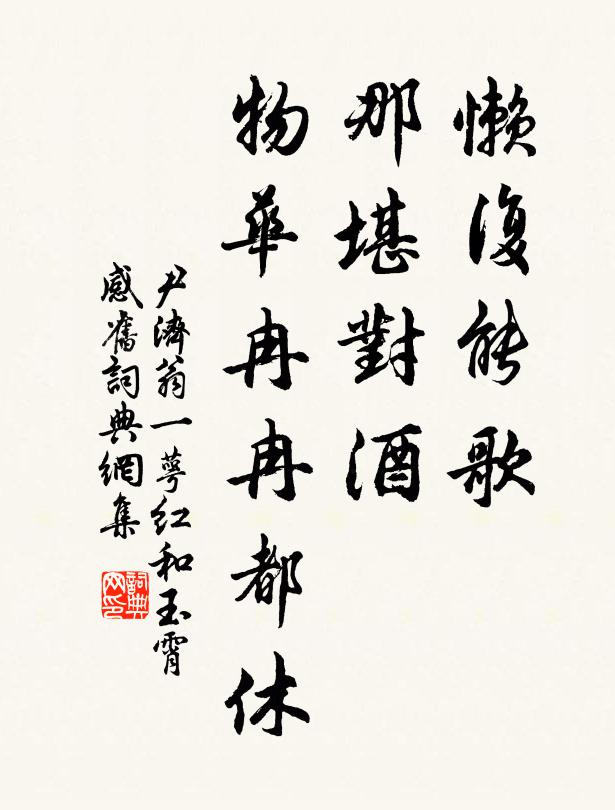 懶復能歌
那堪對酒
物華冉冉都休
尹濟翁一萼紅和玉霄
感舊詞典網集
詞典
网印